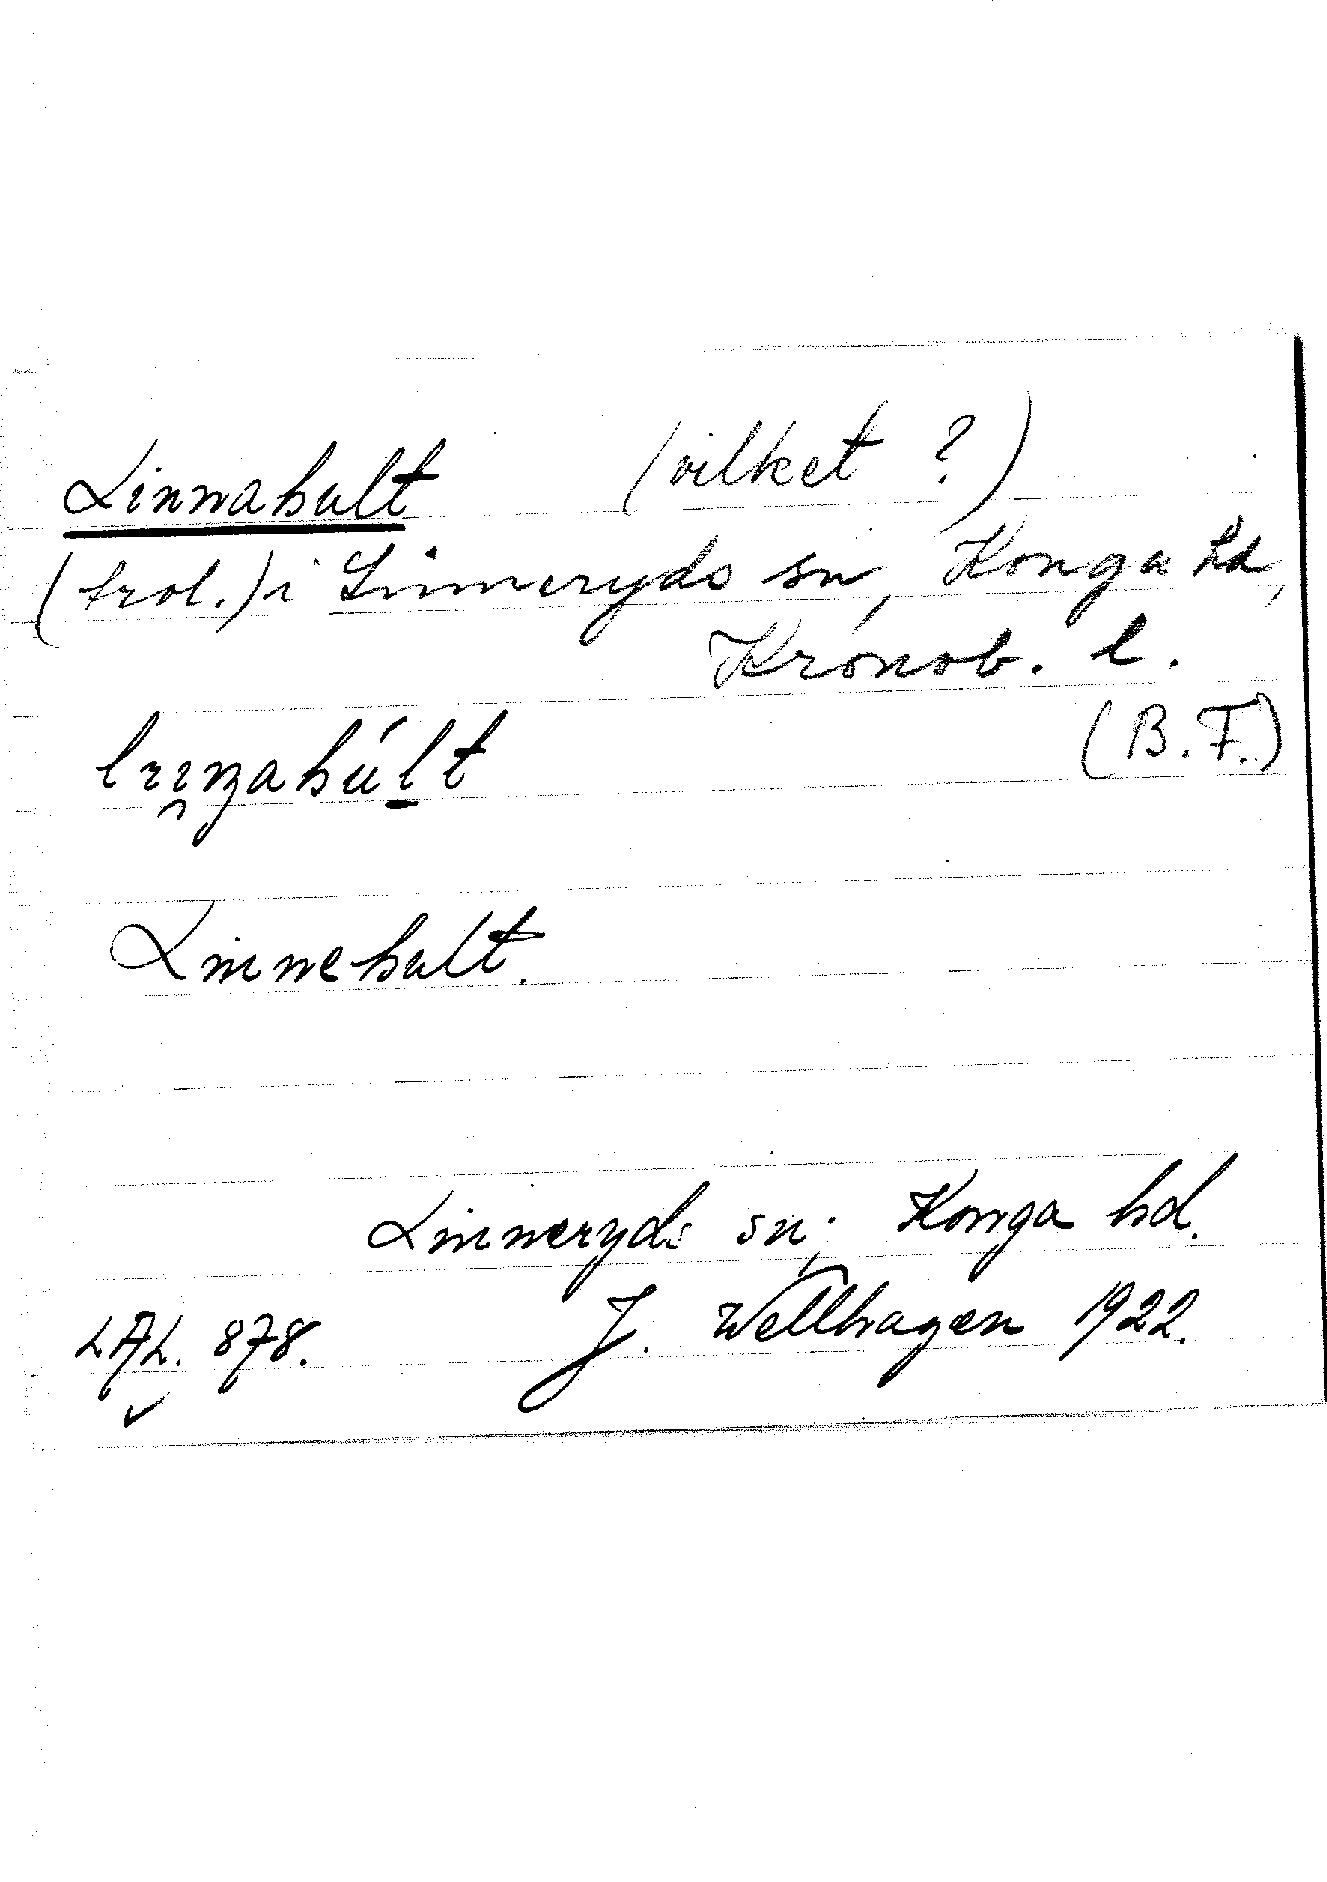 Linnahult (vilket ?)
(trol.) i Linneryds sn, Konga hd,
Kronob. l.
(B. F.)
Linnehult.
Linneryds sn; Konga hd.
LAL. 878. J. Wellhagen 1922.